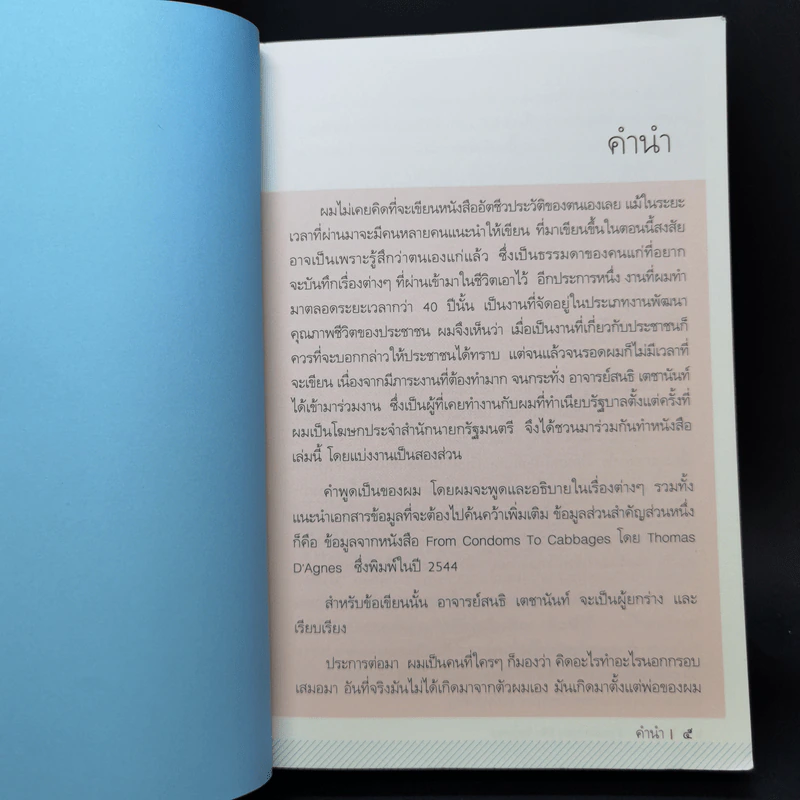 คำนำ
ผมไม่เคยคิดที่จะเขียนหนังสืออัตชีวประวัติของตนเองเลย แม้ในระยะ
เวลาที่ผ่านมาจะมีคนหลายคนแนะนำให้เขียน ที่มาเขียนขึ้นในตอนนี้สงสัย
อาจเป็นเพราะรู้สึกว่าตนเองแก่แล้ว ซึ่งเป็นธรรมดาของคนแก่ที่อยาก
จะบันทึกเรื่องต่างๆ ที่ผ่านเข้ามาในชีวิตเอาไว้ อีกประการหนึ่ง งานที่ผมทำ
มาตลอดระยะเวลากว่า 40 ปีนั้น เป็นงานที่จัดอยู่ในประเภทงานพัฒนา
คุณภาพชีวิตของประชาชน ผมจึงเห็นว่า เมื่อเป็นงานที่เกี่ยวกับประชาชนก็
ควรที่จะบอกกล่าวให้ประชาชนได้ทราบ แต่จนแล้วจนรอดผมก็ไม่มีเวลาที่
จะเขียน เนื่องจากมีภาระงานที่ต้องทำมาก จนกระทั่ง อาจารย์สนธิ เตชานันท์
ได้เข้ามาร่วมงาน ซึ่งเป็นผู้ที่เคยทำงานกับผมที่ทำเนียบรัฐบาลตั้งแต่ครั้งที่
ผมเป็นโฆษกประจำสำนักนายกรัฐมนตรี จึงได้ชวนมาร่วมกันทำหนังสือ
เล่มนี้ โดยแบ่งงานเป็นสองส่วน
คำพูดเป็นของผม โดยผมจะพูดและอธิบายในเรื่องต่างๆ รวมทั้ง
แนะนำเอกสารข้อมูลที่จะต้องไปค้นคว้าเพิ่มเติม ข้อมูลส่วนสำคัญส่วนหนึ่ง
ก็คือ ข้อมูลจากหนังสือ From Condoms To Cabbages โดย Thomas
D'Agnes ซึ่งพิมพ์ในปี 2544
สำหรับข้อเขียนนั้น อาจารย์สนธิ เตชานันท์ จะเป็นผู้ยกร่าง และ
เรียบเรียง
ประการต่อมา ผมเป็นคนที่ใครๆ ก็มองว่า คิดอะไรทำอะไรนอกกรอบ
เสมอมา อันที่จริงมันไม่ได้เกิดมาจากตัวผมเอง มันเกิดมาตั้งแต่พ่อของผม
คำนำ | ๕